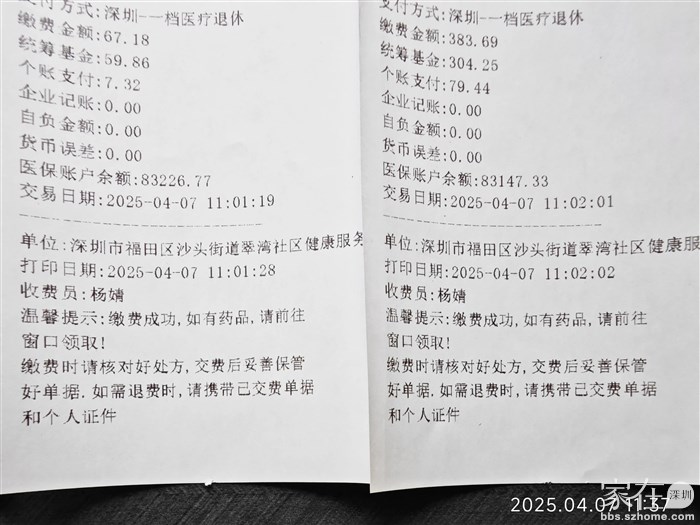 支付方式:深圳-一档医疗退休
缴费金额:67.18
统筹基金:59.86
个账支付:7.32
企业记账:0.00
自负金额:0.00
货币误差:0.00
医保账户余额:83226.77
交易日期:2025-04-07 11:01:19
单位:深圳市福田区沙头街道翠湾社区健康服务
打印日期:2025-04-07 11:01:28
收费员:杨婧
温馨提示:缴费成功,如有药品,请前往
窗口领取!
缴费时请核对好处方,交费后妥善保管
好单据.如需退费时,请携带已交费单据
和个人证件
支付方式:深圳-一档医疗退休
缴费金额:383.69
统筹基金:304.25
个账支付:79.44
企业记账:0.00
自负金额:0.00
货币误差:0.00
医保账户余额:83147.33
交易日期:2025-04-07 11:02:01
单位:深圳市福田区沙头街道翠湾社区健康服
打印日期:2025-04-07 11:02:02
收费员:杨婧
温馨提示:缴费成功,如有药品,请前往
窗口领取!
缴费时请核对好处方,交费后妥善保管
好单据.如需退费时,请携带已交费单据
和个人证件
2025.04.07 11:37
家在深圳
bbs.szhome.com